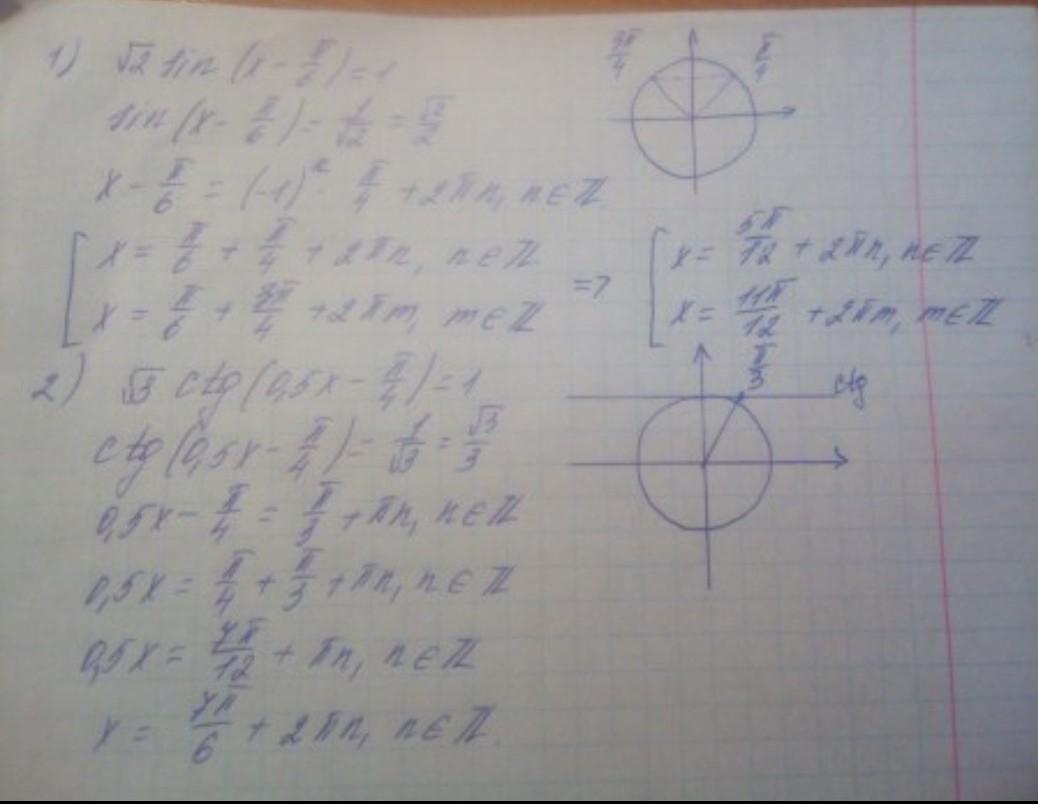 1) √2 sin (x - π/6) = 1
sin (x - π/6) = 1/√2 = √2/2
x - π/6 = (-1)ⁿ · π/4 + 2πn, n ∈ ℤ
3π/4 π/4
[ x = π/6 + π/4 + 2πn, n ∈ ℤ
x = π/6 + 3π/4 + 2πm, m ∈ ℤ
=> [ x = 5π/12 + 2πn, n ∈ ℤ
x = 11π/12 + 2πm, m ∈ ℤ
2) √3 ctg (0,5x - π/4) = 1
ctg (0,5x - π/4) = 1/√3 = √3/3
π/3 ctg
0,5x - π/4 = π/3 + πn, n ∈ ℤ
0,5x = π/4 + π/3 + πn, n ∈ ℤ
0,5x = 7π/12 + πn, n ∈ ℤ
x = 7π/6 + 2πn, n ∈ ℤ.